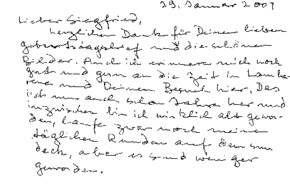 23. Januar 2009
Lieber Siegfried,
herzlichen Dank für Deinen lieben
Geburtstagsbrief und die schönen
Bilder. Auch ich erinnere mich noch
gut und gern an die Zeit in
und Deinen Besuch hier. Das
ist nun auch schon Jahre her und
inzwischen bin ich wirklich alt gewor-
den, laufe zwar noch meine
täglichen Runden auf dem
deck, aber es sind weniger
geworden.